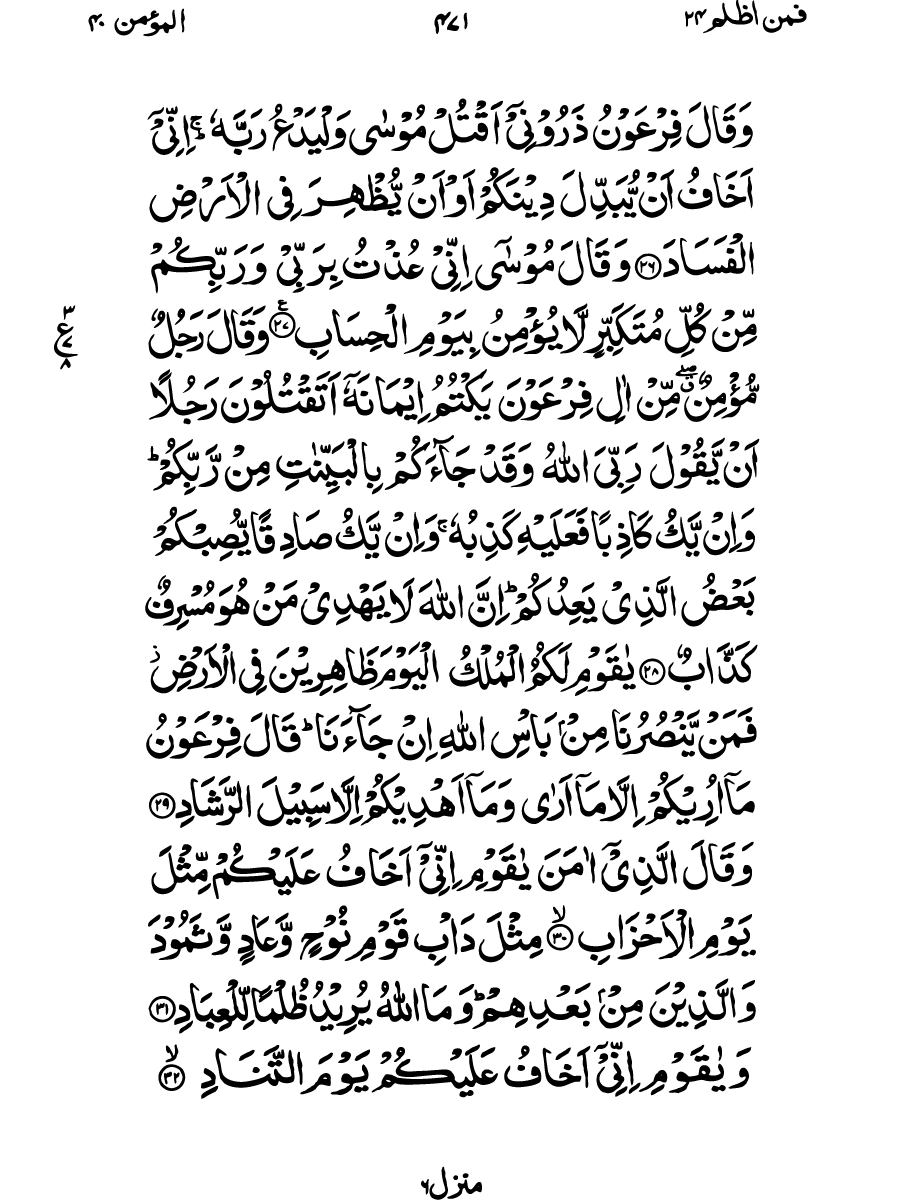 فمن اظلم ۲۴
۴۷۱
المؤمن ۴۰
وَقَالَ فِرْعَوْنُ ذَرُوْنِیْۤ اَقْتُلْ مُوْسٰی وَلْیَدْعُ رَبَّهٗ ۚ اِنِّیْۤ
اَخَافُ اَنْ یُّبَدِّلَ دِیْنَكُمْ اَوْ اَنْ یُّظْهِرَ فِی الْاَرْضِ
الْفَسَادَ ﴿۲۶﴾ وَقَالَ مُوْسٰۤی اِنِّیْ عُذْتُ بِرَبِّیْ وَرَبِّكُمْ
مِّنْ كُلِّ مُتَكَبِّرٍ لَّا یُؤْمِنُ بِیَوْمِ الْحِسَابِ ﴿۲۷﴾ وَقَالَ رَجُلٌ
۳
ع
۷
۸
مُّؤْمِنٌ ۖۗ مِّنْ اٰلِ فِرْعَوْنَ یَكْتُمُ اِیْمَانَهٗۤ اَتَقْتُلُوْنَ رَجُلًا
اَنْ یَّقُوْلَ رَبِّیَ اللّٰهُ وَقَدْ جَآءَكُمْ بِالْبَیِّنٰتِ مِنْ رَّبِّكُمْ ؕ
وَاِنْ یَّكُ كَاذِبًا فَعَلَیْهِ كَذِبُهٗ ۚ وَاِنْ یَّكُ صَادِقًا یُّصِبْكُمْ
بَعْضُ الَّذِیْ یَعِدُكُمْ ؕ اِنَّ اللّٰهَ لَا یَهْدِیْ مَنْ هُوَ مُسْرِفٌ
كَذَّابٌ ﴿۲۸﴾ یٰقَوْمِ لَكُمُ الْمُلْكُ الْیَوْمَ ظَاهِرِیْنَ فِی الْاَرْضِ ؗ
فَمَنْ یَّنْصُرُنَا مِنْۢ بَاْسِ اللّٰهِ اِنْ جَآءَنَا ؕ قَالَ فِرْعَوْنُ
مَاۤ اُرِیْكُمْ اِلَّا مَاۤ اَرٰی وَمَاۤ اَهْدِیْكُمْ اِلَّا سَبِیْلَ الرَّشَادِ ﴿۲۹﴾
وَقَالَ الَّذِیْۤ اٰمَنَ یٰقَوْمِ اِنِّیْۤ اَخَافُ عَلَیْكُمْ مِّثْلَ
یَوْمِ الْاَحْزَابِ ﴿۳۰﴾ۙ مِثْلَ دَاْبِ قَوْمِ نُوْحٍ وَّعَادٍ وَّثَمُوْدَ
وَالَّذِیْنَ مِنْۢ بَعْدِهِمْ ؕ وَمَا اللّٰهُ یُرِیْدُ ظُلْمًا لِّلْعِبَادِ ﴿۳۱﴾
وَیٰقَوْمِ اِنِّیْۤ اَخَافُ عَلَیْكُمْ یَوْمَ التَّنَادِ ﴿۳۲﴾ۙ
منزل ۶